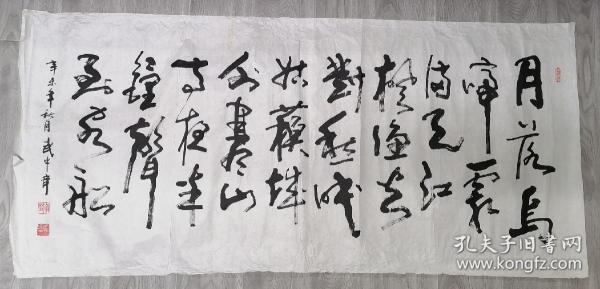 月落烏
啼霜
滿天江
楓漁火
對愁眠
姑蘇城
外寒山
寺夜半
鐘聲
到客船
辛未年秋月武中奇
孔夫子旧书网
www.kongfz.com